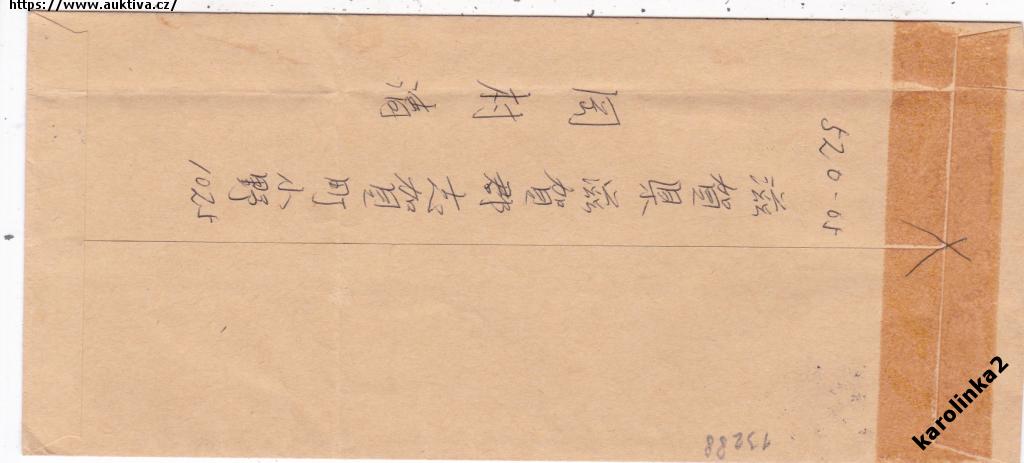 https://www.auktiva.cz/
520-05
滋賀県滋賀郡志賀町小野
1025
岡村
13288
karolinka2